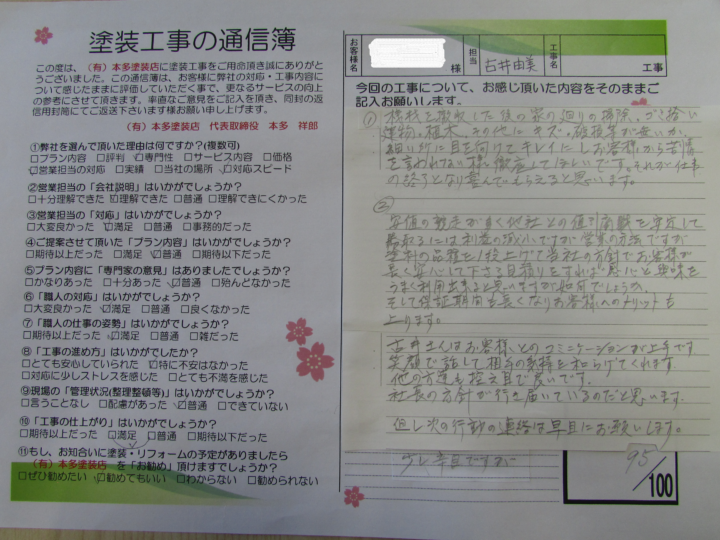 塗装工事の通信簿
この度は、(有)本多塗装店に塗装工事をご用命頂き誠にありがと
うございました。この通信簿は、お客様に弊社の対応・工事内容に
ついて感じたままに評価していただく事で、更なるサービスの向上
の参考にさせて頂きます。率直なご意見をご記入を頂き、同封の返
信用封筒にてご返送下さいます様お願い申し上げます。
(有)本多塗装店 代表取締役 本多 祥郎
①弊社を選んで頂いた理由は何ですか?(複数可)
□プラン内容 □評判 ☑専門性 □サービス内容 □価格
☑営業担当の対応 □実績 □当社の場所 ☑対応スピード
②営業担当の「会社説明」はいかがでしょうか?
□十分理解できた ☑理解できた □普通 □理解できにくかった
③営業担当の「対応」はいかがでしょうか?
□大変良かった ☑満足 □普通 □事務的だった
④ご提案させて頂いた「プラン内容」はいかがでしょうか?
□期待以上だった □満足 ☑普通 □期待以下だった
⑤プラン内容に「専門家の意見」はありましたでしょうか?
□かなりあった □十分あった ☑普通 □殆んどなかった
⑥「職人の対応」はいかがでしょうか?
□大変良かった ☑満足 □普通 □良くなかった
⑦「職人の仕事の姿勢」はいかがでしょうか?
□期待以上だった ☑満足 □普通 □雑だった
⑧「工事の進め方」はいかがでしたか?
□とても安心していられた ☑特に不安はなかった
□対応に少しストレスを感じた □とても不満を感じた
⑨現場の「管理状況(整理整頓等)」はいかがでしょうか?
□言うことなし □配慮があった ☑普通 □できていない
⑩「工事の仕上がり」はいかがでしょうか?
□期待以上だった ☑満足 □普通 □期待以下だった
⑪もし、お知合いに塗装・リフォームの予定がありましたら
(有)本多塗装店 を「お勧め」頂けますでしょうか?
□ぜひ勧めたい ☑勧めてもいい □わからない □勧められない
お客様名 様 担当 古井由美 工事名 工事
今回の工事について、お感じ頂いた内容をそのままご
記入お願いします。
① 機材を撤収した後の家の廻りの掃除、ゴミ拾い
建物、植木、その他にキズ、破損等が無いか、
細い所に目を向けてキレイにしお客様から苦情
を言われない様に徹底してほしいです。それが仕事
の終了となり喜んでもらえると思います。
②
塗料の品種を1段上げて当社の方針でお客様が
長く安心して下さる見積りをすれば
うまく利用出来ると思いますが如何でしょうか。
そして保証期間も長くなりお客様へのメリットも
上ります。
古井さんはお客様とのコミニケーションが上手です
笑顔で話して相手の気持を和らげてくれます
他の方達も控え目で良いです。
社長の方針が行き届いているのだと思います。
但し次の行動の連絡は早目にお願いします。
少し辛目ですが
95/100